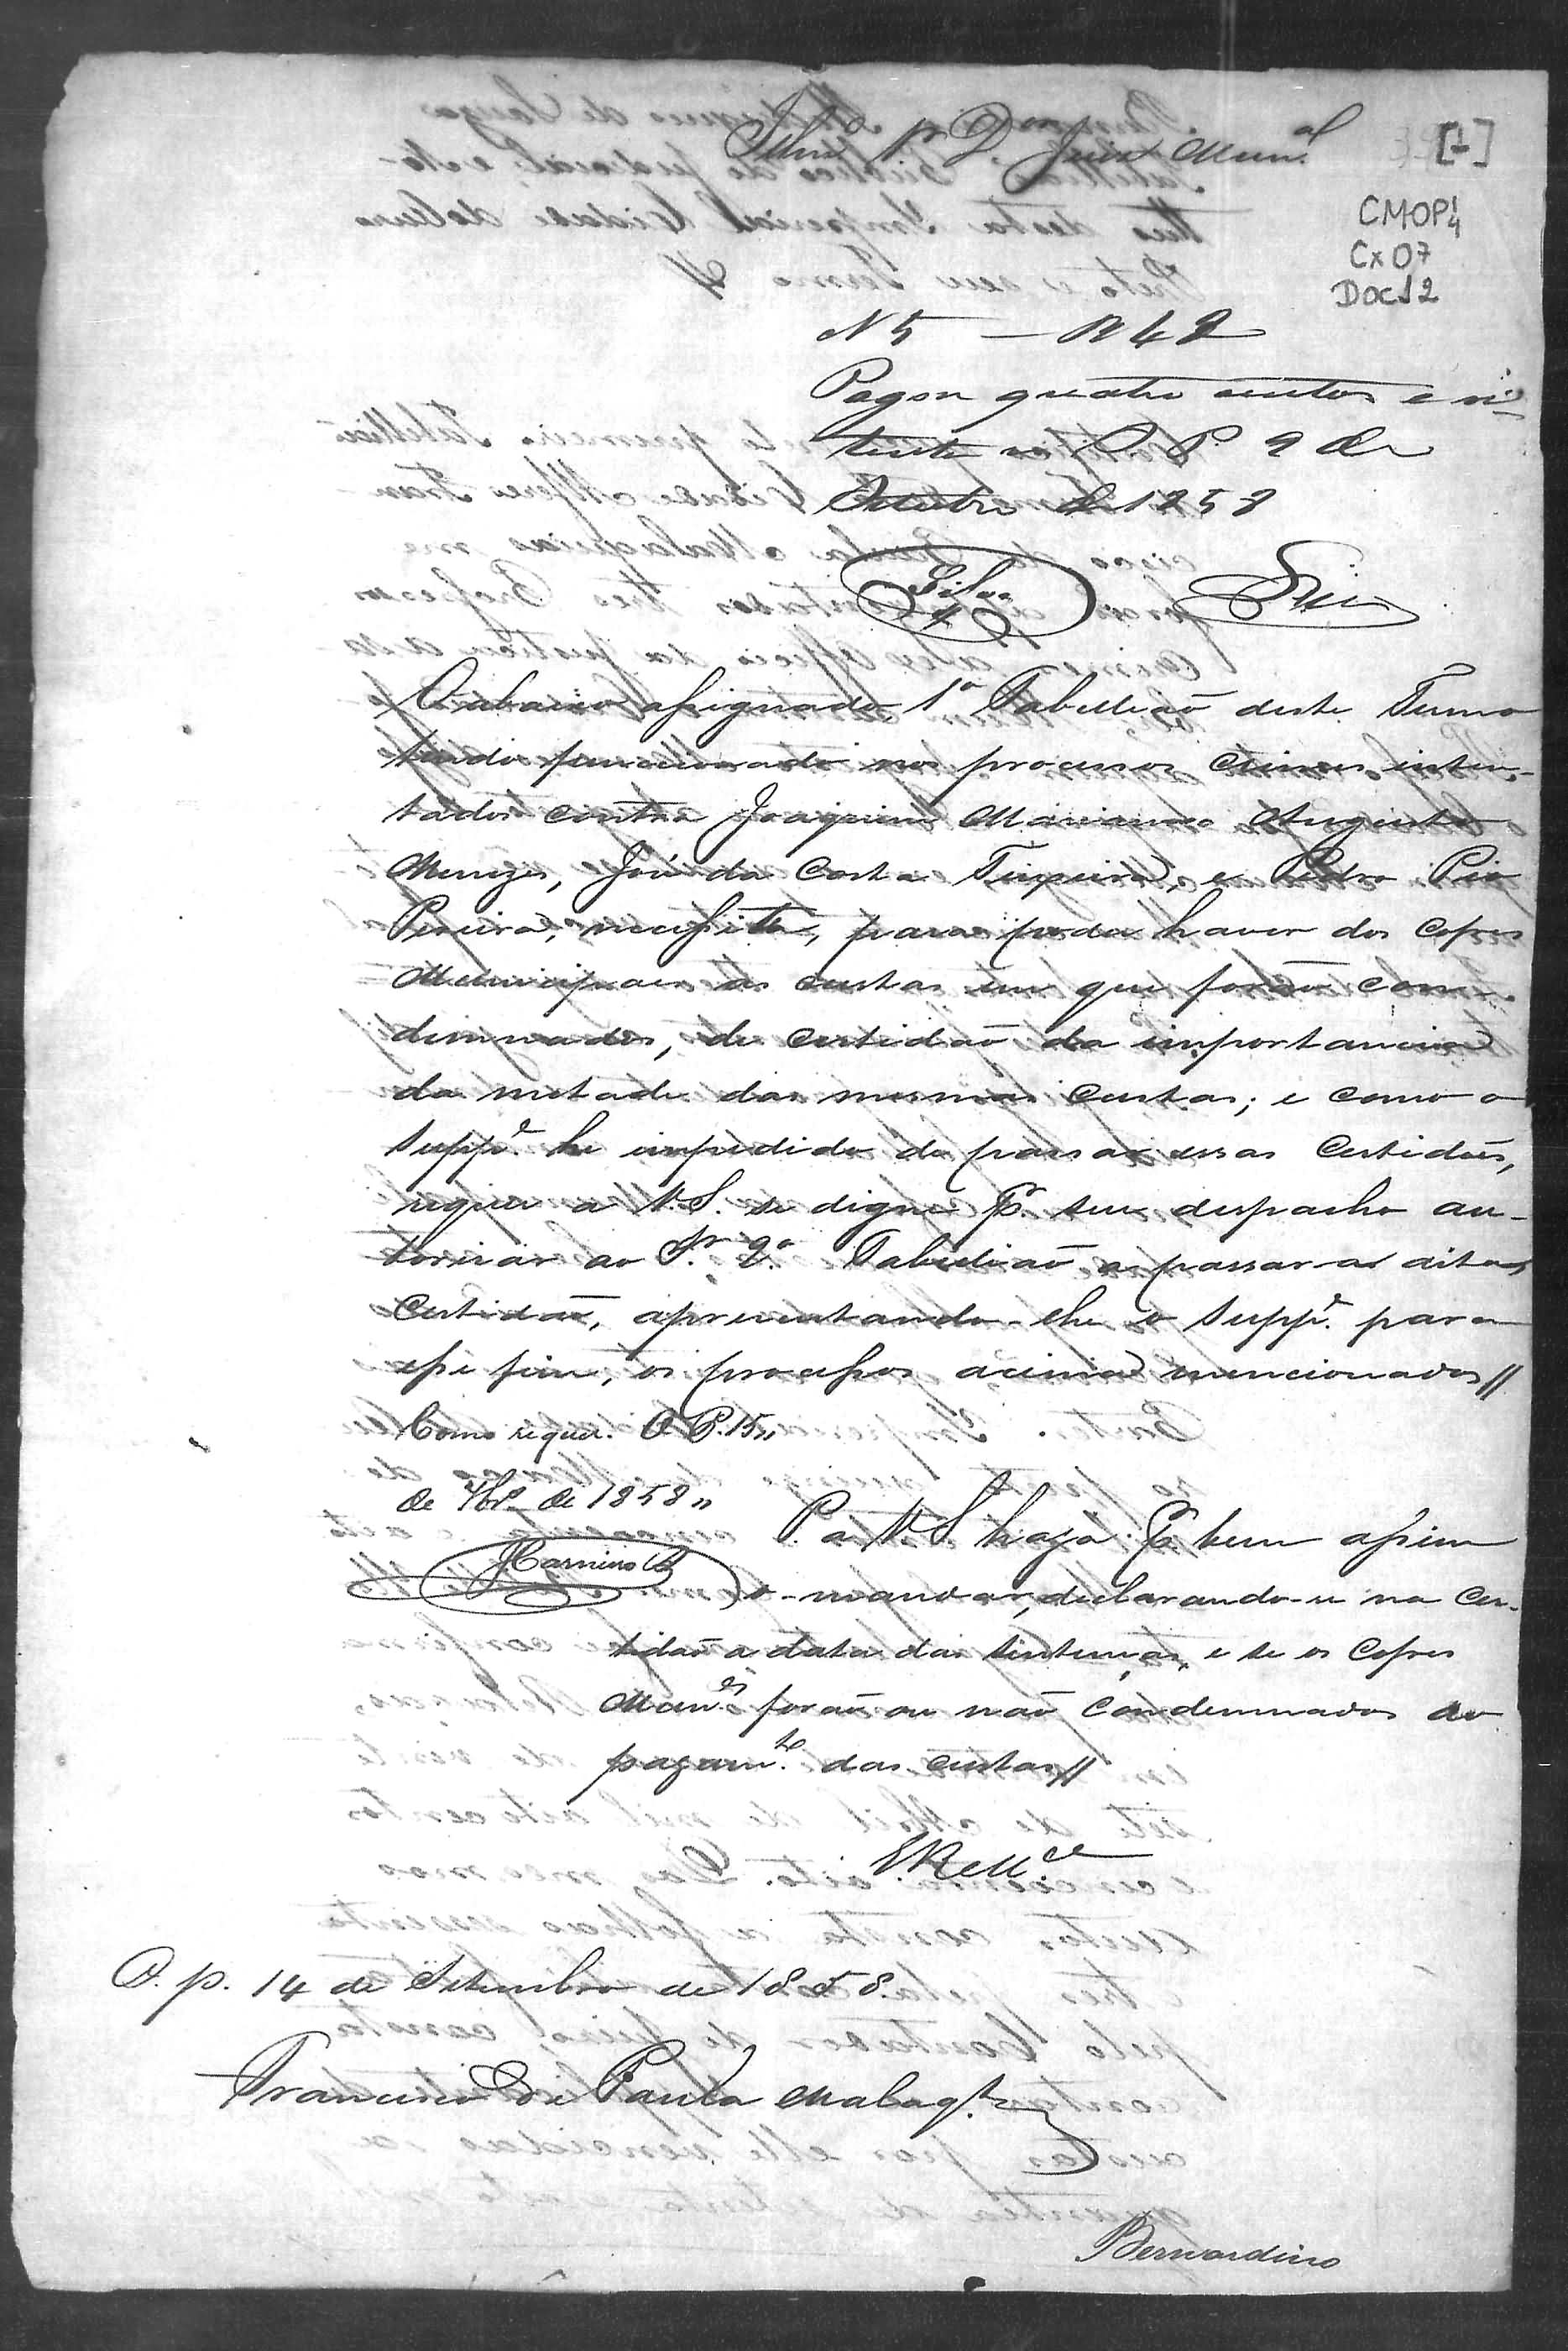 Illm.º Sr. Dor. Juiz Mun.al
[1]
CMOP
Cx 07
DOC 12
N 5 — R 4
Pagou quatro centos e vi-
O P. 9 de
Outubro de 1858
Silva
O abaixo assignado 1º Tabellião deste Termo
tendo funccionado nos processos crimes inten-
tados contra Joaquim Marianno Augusto
Menezes, José da Costa Teixeira, e Pedro Pio
Pereira, necessita, para poder haver dos Cofres
Municipaes as custas em que forão con-
demnados, de certidão da importancia
da metade das mesmas custas; e como o
Suppe. he impedido de passar essas Certidões,
requer a V.S. se digne p. seu despacho au-
torisar ao Sr. 2º Tabellião a passar as ditas
Certidões, apresentando-lhe o Suppe. para
esse fim, os processos acima mencionados//
Como requer. O P. 15,,
de 7br.º de 1858,,
P. a V.S. haja p. bem assim
o mandar, declarando-se na Cer-
tidão a data das sentenças, e se os Cofres
Mun.es forão ou não condemnados ao
pagam.to das custas//
E R M.ce
O. P. 14 de Setembro de 1858.
Francisco de Paula Malaq.s
Bernardino